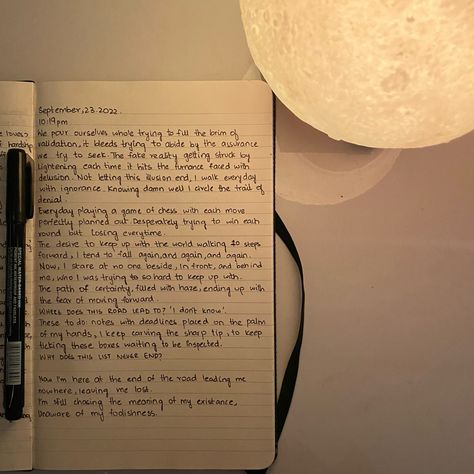 September, 23. 2022.
10:19pm
We pour ourselves whole trying to fill the brim of
validation, it bleeds trying to abide by the assurance
we try to seek. The fake reality getting struck by
lightening each time it hits the turrance faced with
delusion. Not letting this illusion end, I walk everyday
with ignorance. Knowing damn well I circle the trail of
denial.
Everyday playing a game of chess with each move
perfectly planned out. Desperately trying to win each
round but losing everytime.
The desire to keep up with the world walking 10 steps
forward, I tend to fall again, and again, and again.
Now, I stare at no one beside, in front, and behind
me, who I was trying to so hard to keep up with.
The path of certainty, filled with haze, ending up with
the fear of moving forward.
WHERE DOES THIS ROAD LEAD TO? 'I don't know'.
These to do notes with deadlines placed on the palm
of my hands, I keep carving the sharp tip, to keep
ticking these boxes waiting to be inspected.
WHY DOES THIS LIST NEVER END?
Now I'm here at the end of the road leading me
nowhere, leaving me lost.
I'm still chasing the meaning of my existance,
Unaware of my foolishness.